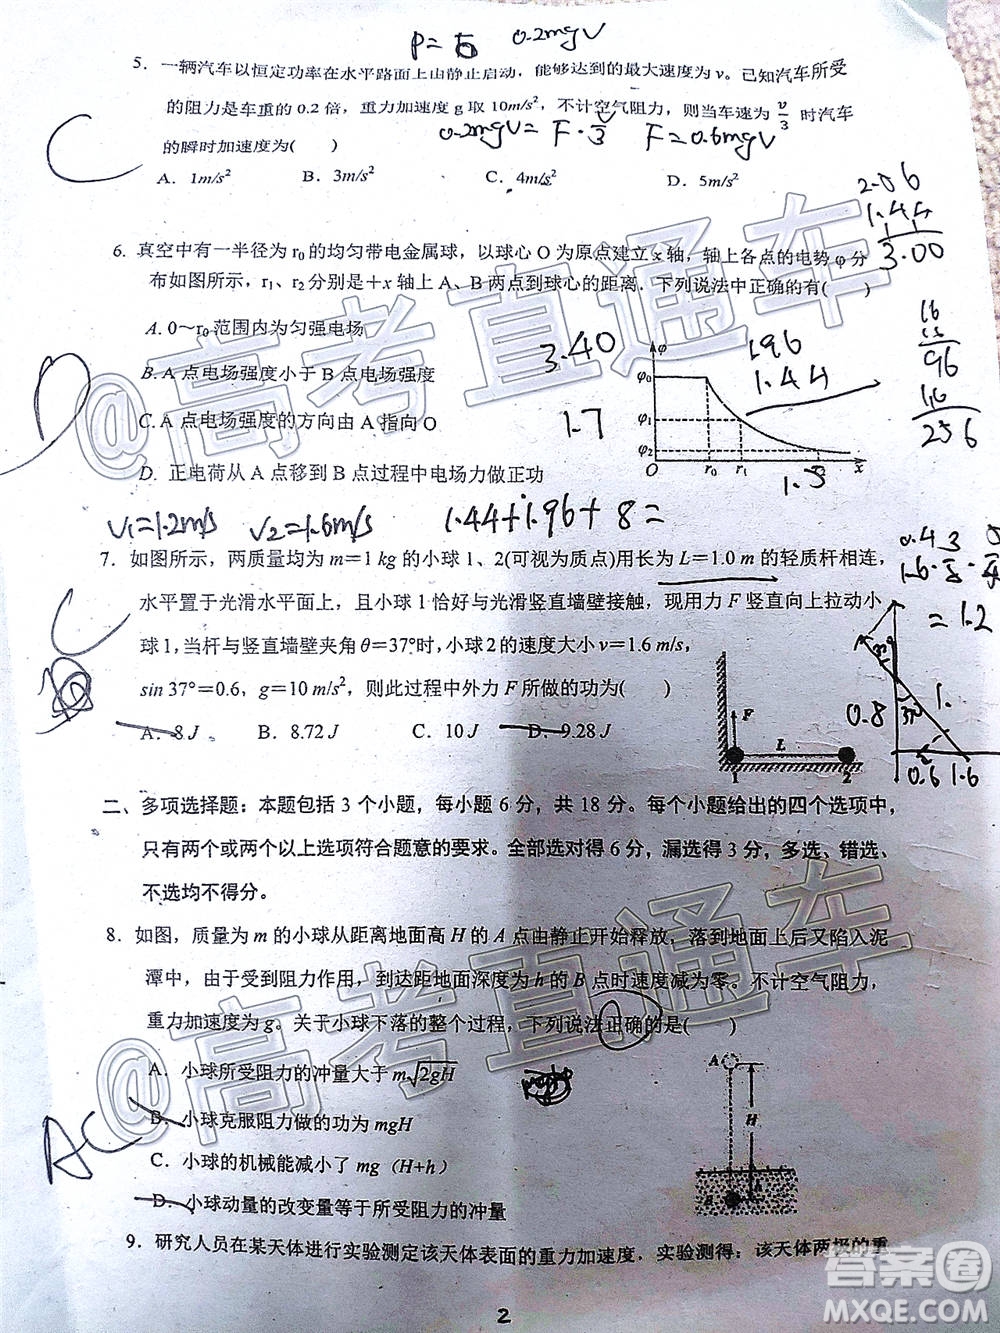 P= 0.2mgV
5. 一辆汽车以恒定功率在水平路面上由静止启动，能够达到的最大速度为 v。已知汽车所受
的阻力是车重的 0.2 倍，重力加速度 g 取 10m/s²，不计空气阻力，则当车速为 v/3 时汽车
的瞬时加速度为(　　)
0.2mgV=F·v/3 F=0.6mgV
C
A. 1m/s² B. 3m/s² C. 4m/s² D. 5m/s²
1.44
3.00
6. 真空中有一半径为 r₀ 的均匀带电金属球，以球心 O 为原点建立 x 轴，轴上各点的电势 φ 分
布如图所示，r₁、r₂ 分别是＋x 轴上 A、B 两点到球心的距离．下列说法中正确的有(　　)
A. 0～r₀ 范围内为匀强电场
B. A 点电场强度小于 B 点电场强度
C. A 点电场强度的方向由 A 指向 O
D. 正电荷从 A 点移到 B 点过程中电场力做正功
D
3.40
1.7
1.96
1.44
φ
φ₀
φ₁
φ₂
O r₀ r₁ x
16
96
16
256
V₁=1.2m/s V₂=1.6m/s 1.44+1.96+8=
7. 如图所示，两质量均为 m＝1 kg 的小球 1、2(可视为质点)用长为 L＝1.0 m 的轻质杆相连，
水平置于光滑水平面上，且小球 1 恰好与光滑竖直墙壁接触，现用力 F 竖直向上拉动小
球 1，当杆与竖直墙壁夹角 θ＝37°时，小球 2 的速度大小 v＝1.6 m/s，
sin 37°＝0.6，g＝10 m/s²，则此过程中外力 F 所做的功为(　　)
A. 8 J B. 8.72 J C. 10 J D. 9.28 J
C
F
L
1 2
=1.2
0.8
37°
1.
0.6 1.6
二、多项选择题：本题包括 3 个小题，每小题 6 分，共 18 分。每个小题给出的四个选项中，
只有两个或两个以上选项符合题意的要求。全部选对得 6 分，漏选得 3 分，多选、错选、
不选均不得分。
8. 如图，质量为 m 的小球从距离地面高 H 的 A 点由静止开始释放，落到地面上后又陷入泥
潭中，由于受到阻力作用，到达距地面深度为 h 的 B 点时速度减为零。不计空气阻力，
重力加速度为 g。关于小球下落的整个过程，下列说法正确的是(　　)
A. 小球所受阻力的冲量大于 m√2gH
B. 小球克服阻力做的功为 mgH
C. 小球的机械能减小了 mg（H+h）
D. 小球动量的改变量等于所受阻力的冲量
AC
A
H
9. 研究人员在某天体进行实验测定该天体表面的重力加速度，实验测得：该天体两极的重
2
@高考直通车
@高考直通车
答案圈
MXQE.COM